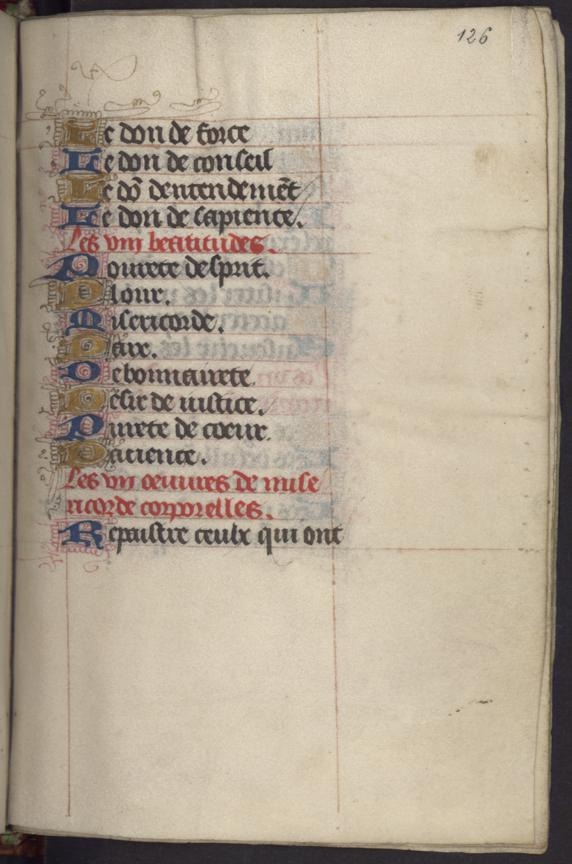 126
Le don de force
Le don de conseil
Le dō dentendemēt
Le don de sapience.
Les viii beatitudes.
Pourete desprit.
Plour.
Misericorde.
Paix.
Debonnairete.
Desir de iustice.
Purete de coeur.
Pacience.
Les vii oeuures de mise
ricorde corporelles.
Repaistre ceulx qui ont